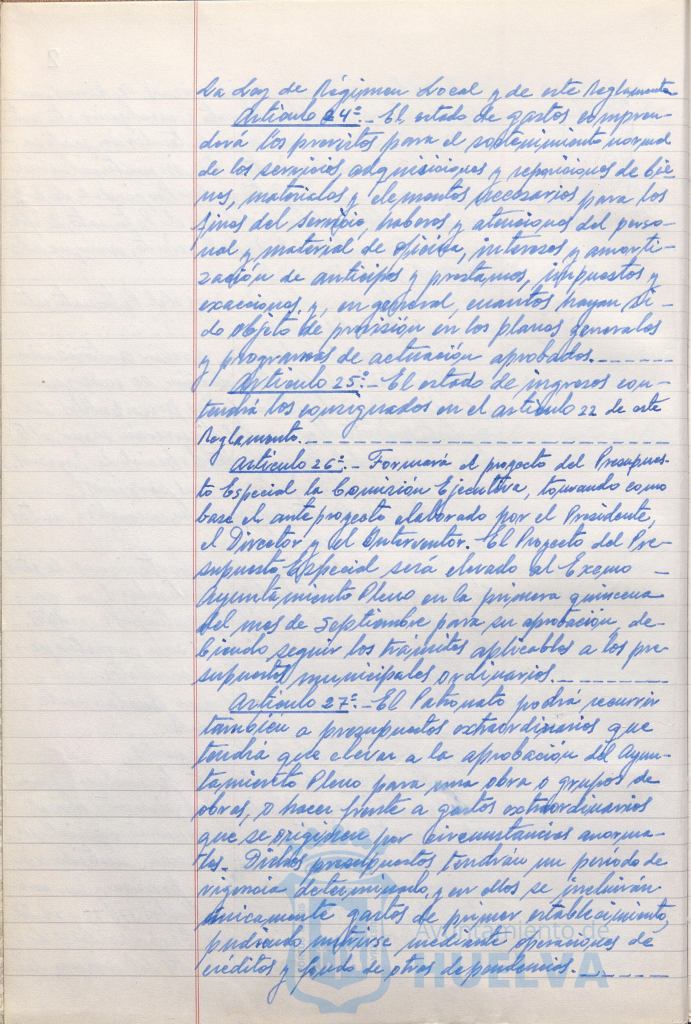 la Ley de Régimen Local y de este Reglamento
Artículo 24º.- El estado de gastos compren-
derá los previstos para el sostenimiento normal
de los servicios, adquisiciones y reposiciones de bie-
nes, materiales y elementos necesarios para los
fines del servicio, haberes y atenciones del perso-
nal y material de oficina, intereses y amorti-
zación de anticipos y prestamos, impuestos y
exacciones, y, en general, cuantos hayan si-
do objeto de previsión en los planes generales
y programas de actuación aprobados.-------
Artículo 25º.- El estado de ingresos con-
tendrá los consignados en el artículo 22 de este
Reglamento.---------------
Artículo 26º.- Formará el proyecto del Presupues-
to Especial la Comisión Ejecutiva, tomando como
base el anteproyecto elaborado por el Presidente,
el Director y el Interventor. El Proyecto del Pre-
supuesto Especial será elevado al Excmo -
Ayuntamiento Pleno en la primera quincena
del mes de Septiembre para su aprobación, de-
biendo seguir los trámites aplicables a los pre-
supuestos municipales ordinarios.---------
Artículo 27º.- El Patronato podrá recurrir
también a presupuestos extraordinarios que
tendrá que elevar a la aprobación del Ayun-
tamiento Pleno para una obra o grupos de
obras, o hacer frente a gastos extraordinarios
que se originen por circunstancias anorma-
les. Dichos presupuestos tendrán un período de
vigencia determinado, y en ellos se incluirán
únicamente gastos de primer establecimiento,
pudiendo nutrirse mediante operaciones de
créditos y fondo de otras dependencias.-------
Ayuntamiento de
HUELVA